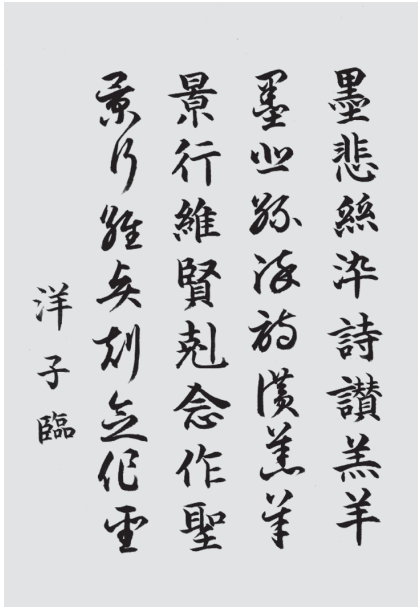 墨悲絲染詩讃羔羊
墨悲絲染詩讃羔羊
景行維賢剋念作聖
景行維賢剋念作聖
洋子臨